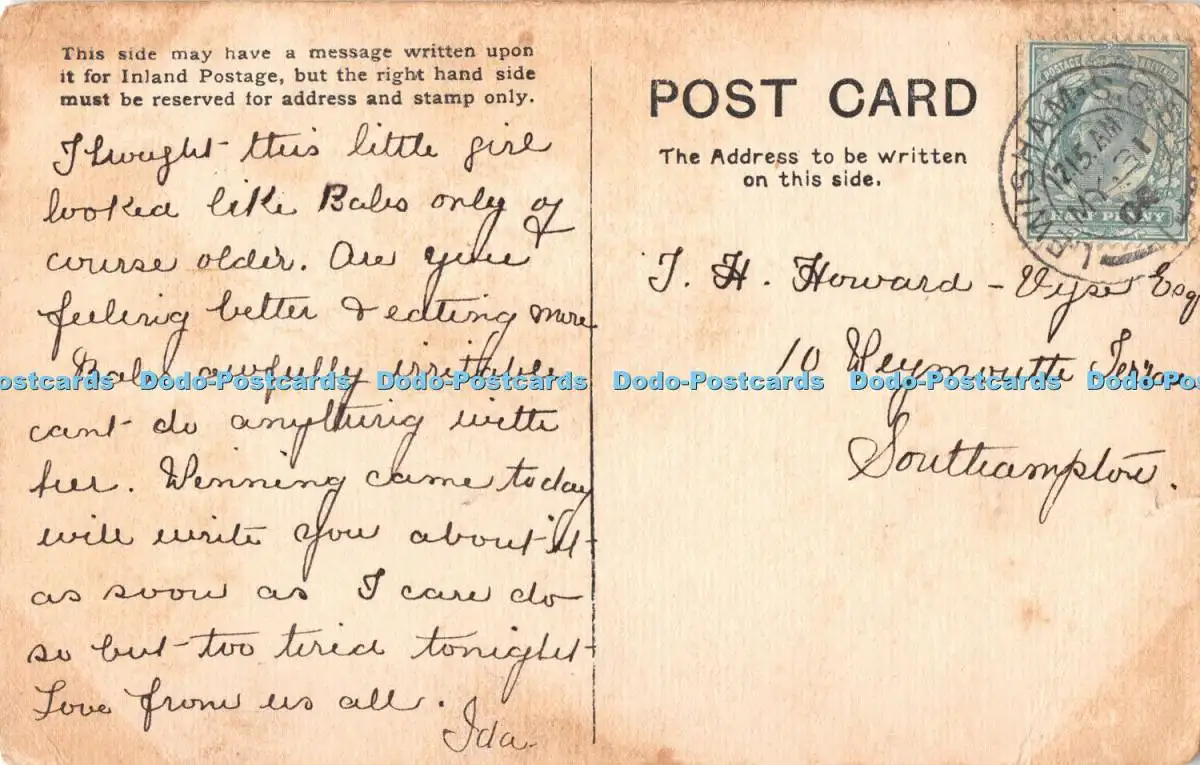 This side may have a message written upon
it for Inland Postage, but the right hand side
must be reserved for address and stamp only.
I thought this little girl
looked like Babs only of
course older. Are you
feeling better & eating more
Babs awfully irritable
cant do anything with
her. Winning came today
will write you about it
as soon as I can do
so but too tired tonight
Love from us all.
Ida.
POST CARD
The Address to be written
on this side.
T. H. Howard - Vyse Esq
10 Weymouth Terrace
Southampton.
POSTAGE REVENUE
HALF PENNY
LEWISHAM. S.O.
12.15. AM
MY 21
Dodo-Postcards Dodo-Postcards Dodo-Postcards Dodo-Postcards Dodo-Postcards